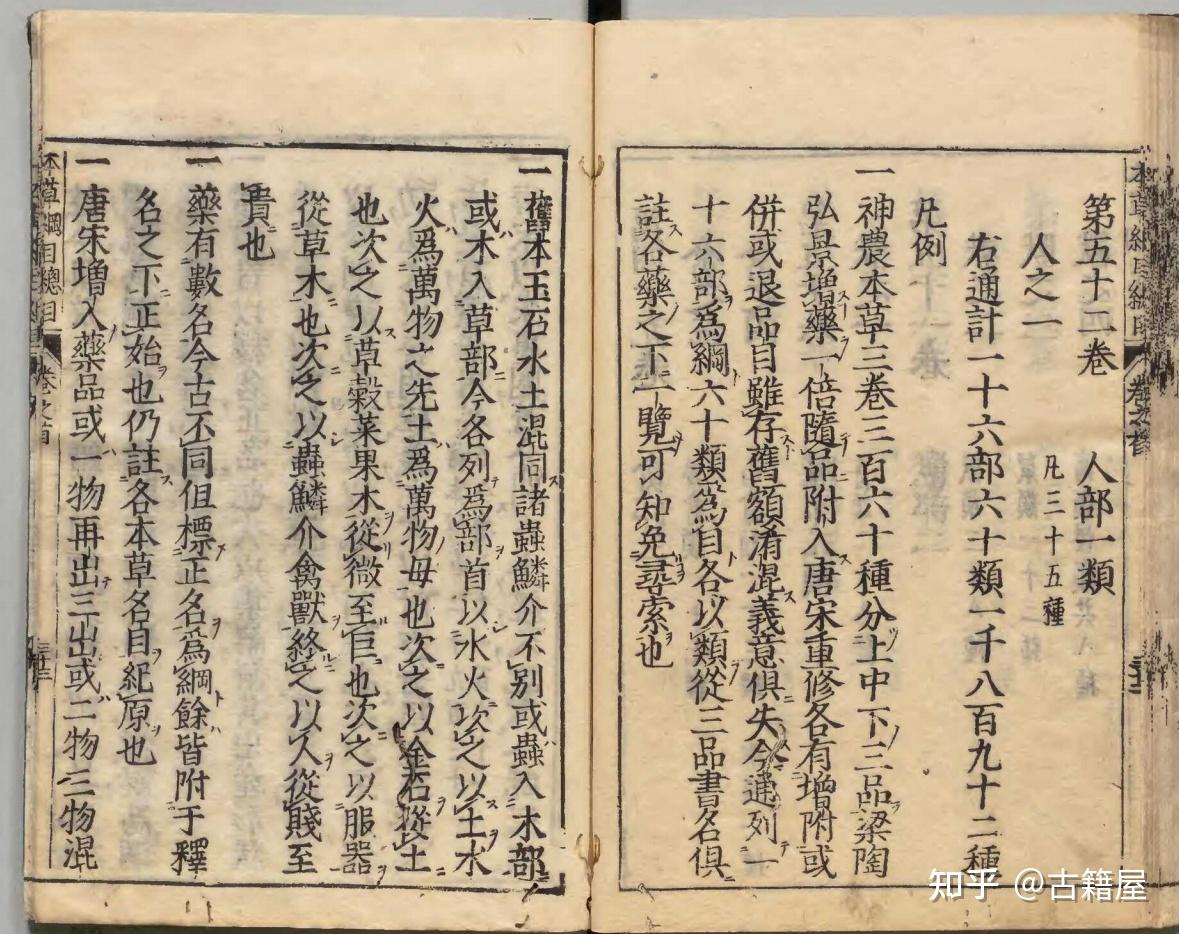 第五十二卷 人部一類
人之一 凡三十五種
右通計一十六部六十類一千八百九十二種
凡例
一神農本草三卷三百六十種分上中下三品梁陶
弘景增藥一倍隨品附入唐宋重修各有增附或
併或退品目雖存舊額淆混義意俱失今通列一
十六部爲綱六十類爲目各以類從三品書名俱
註各藥之下一覽可知免尋索也
一舊本玉石水土混同諸蟲鱗介不別或蟲入木部
或木入草部今各列爲部首以水火次之以土水
火爲萬物之先土爲萬物母也次之以金石從土
也次之以草穀菜果木從微至巨也次之以服器
從草木也次之以蟲鱗介禽獸終之以人從賤至
貴也
一藥有數名今古不同但標正名爲綱餘皆附于釋
名之下正始也仍註各本草名目紀原也
一唐宋增入藥品或一物再出三出或二物三物混
本草綱目總目 卷之首
知乎 @古籍屋